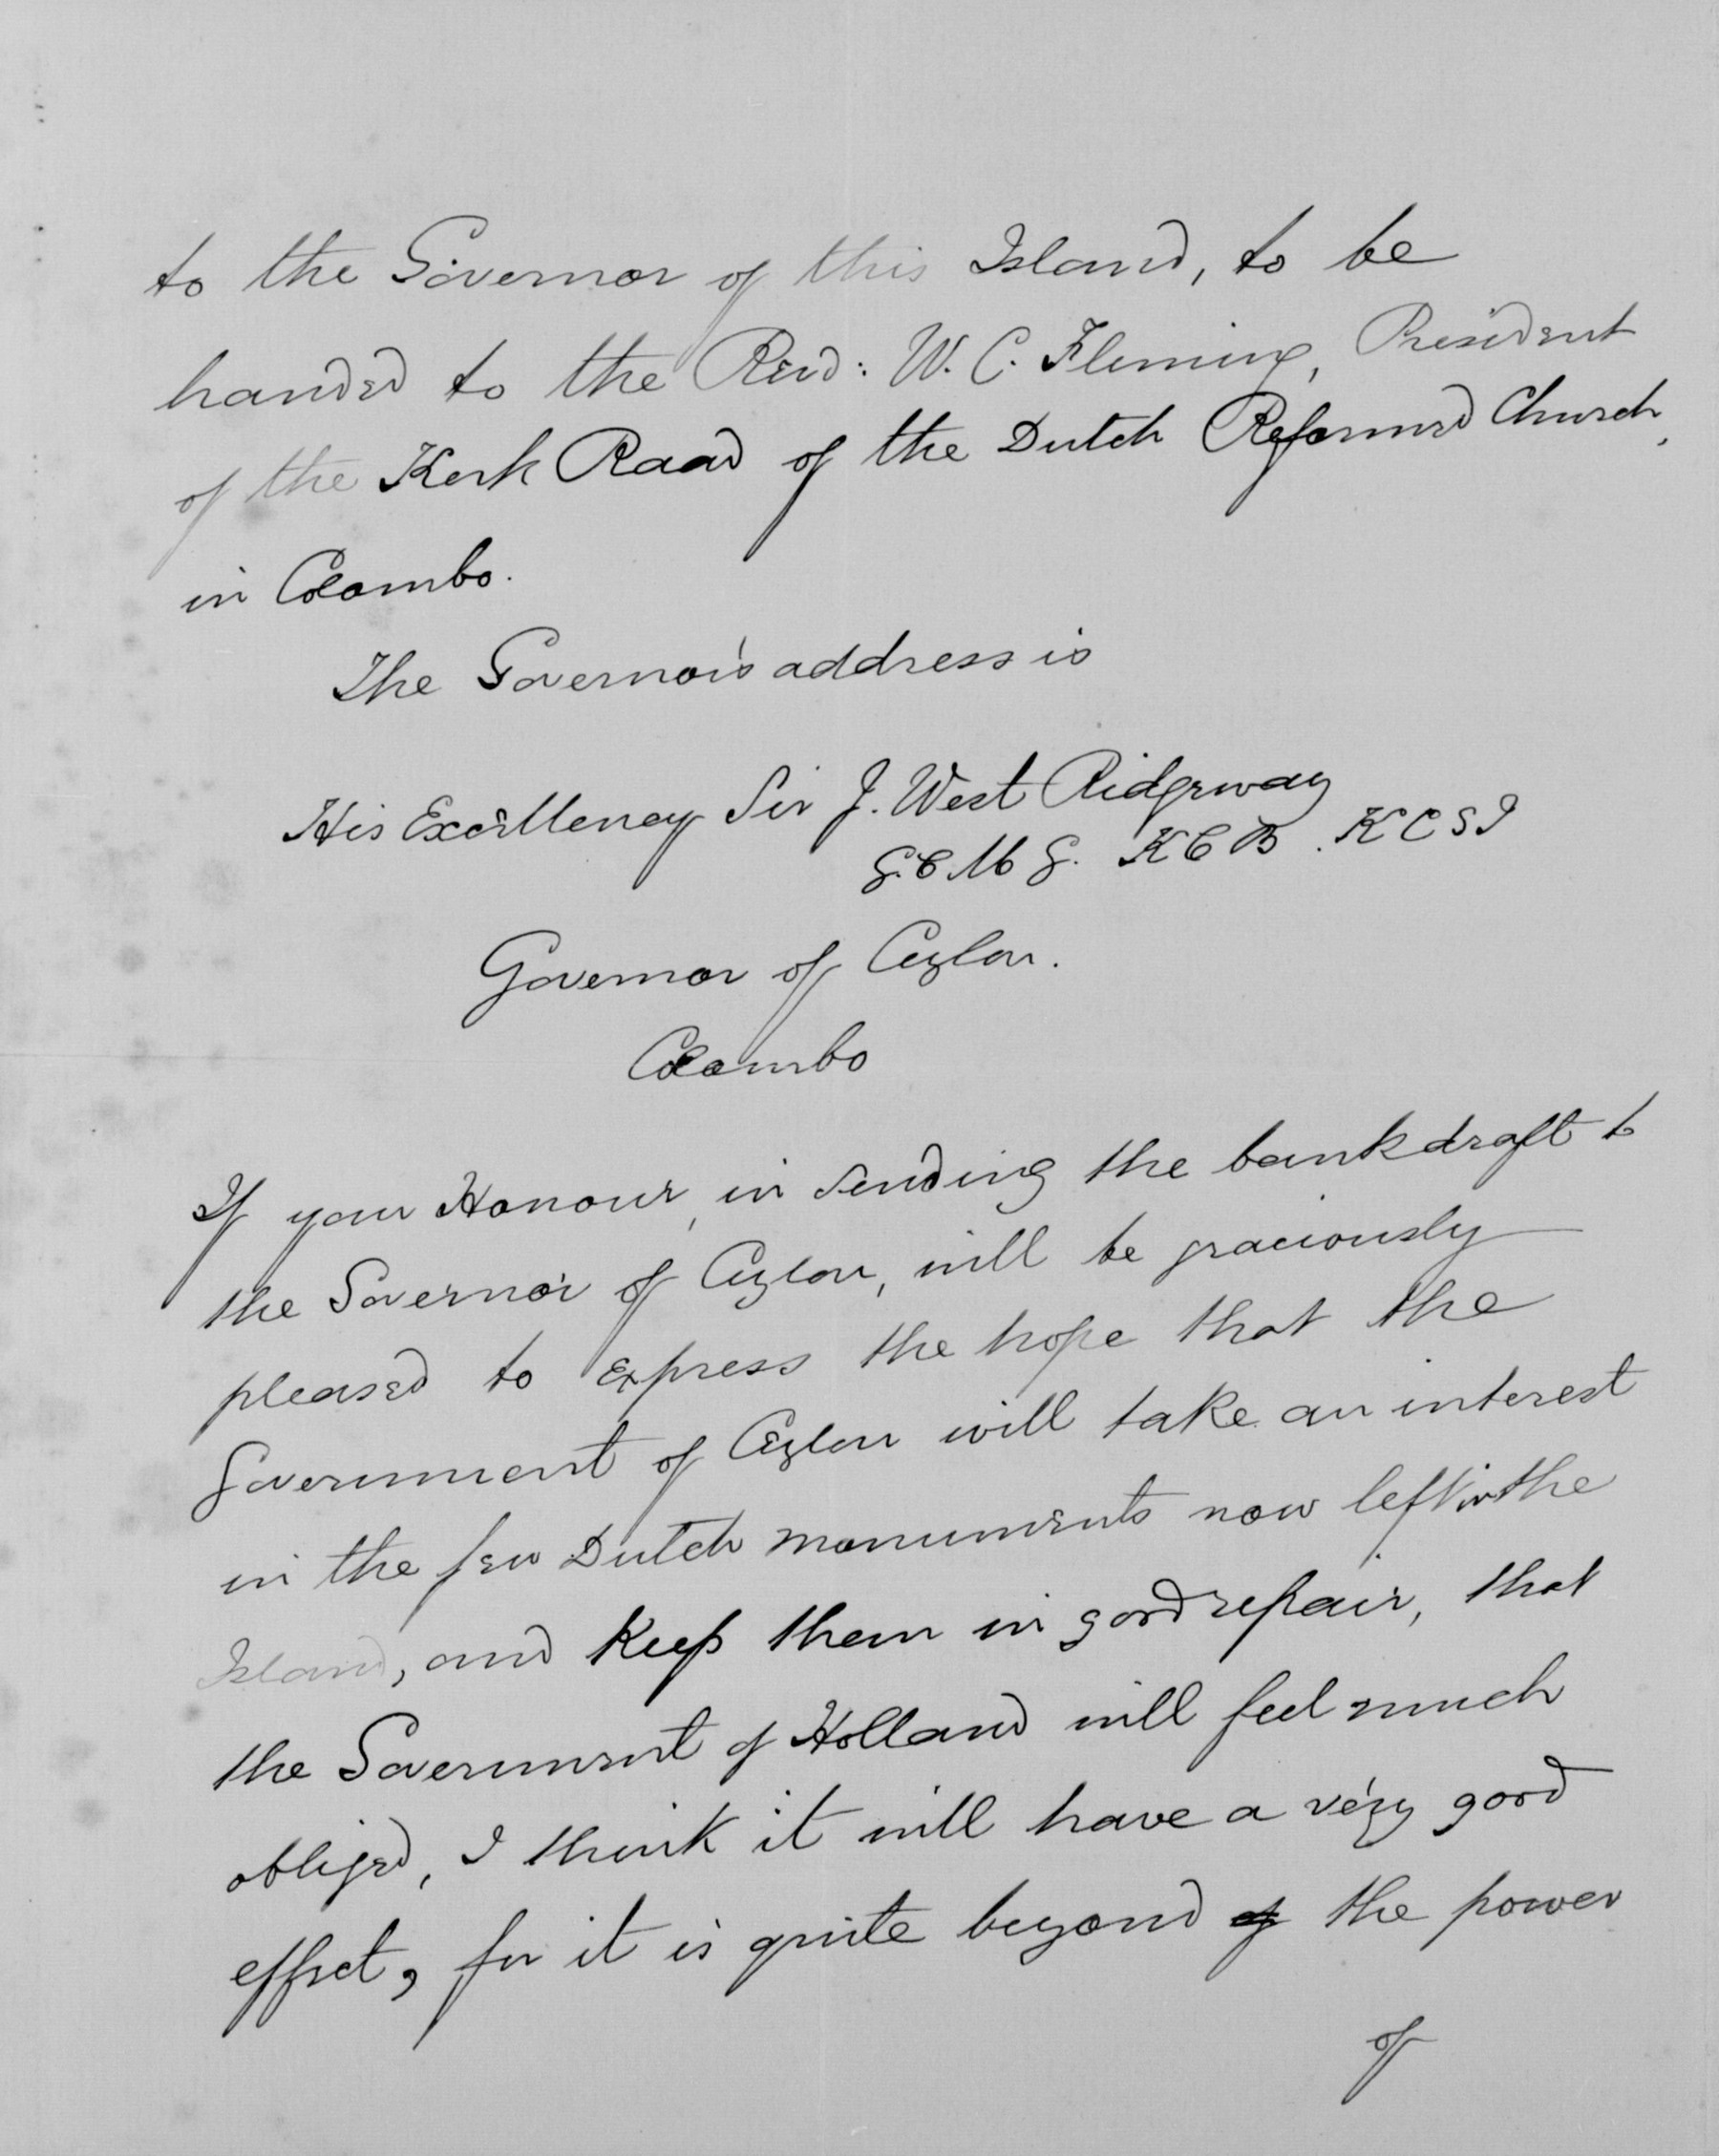 to the Governor of this Island, to be
handed to the Revd: W. C. Fleming, President
of the Kerk Raad of the Dutch Reformed Church,
in Colombo.
The Governor's address is
His Excellency Sir J. West Ridgeway
G.C.M.G. KCB. KCSI
Governor of Ceylon.
Colombo
If your Honour, in sending the bankdraft to
the Governor of Ceylon, will be graciously
pleased to express the hope that the
Government of Ceylon will take an interest
in the few Dutch monuments now left in the
Island, and keep them in good repair, that
the Government of Holland will feel much
obliged, I think it will have a very good
effect, for it is quite beyond of the power
of